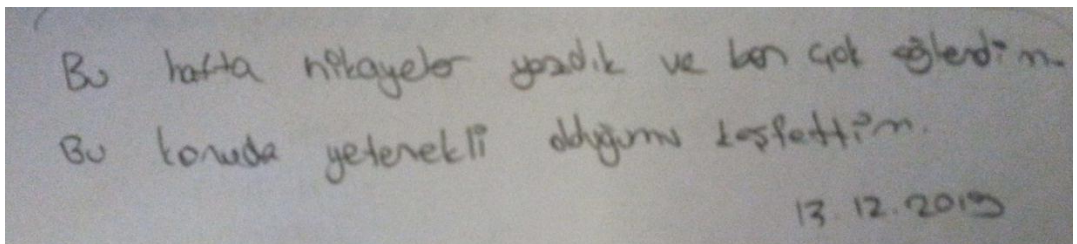 Bu hafta hikayeler yazdık ve ben çok eğlendim.
Bu konuda yetenekli olduğumu keşfettim.
13.12.2019